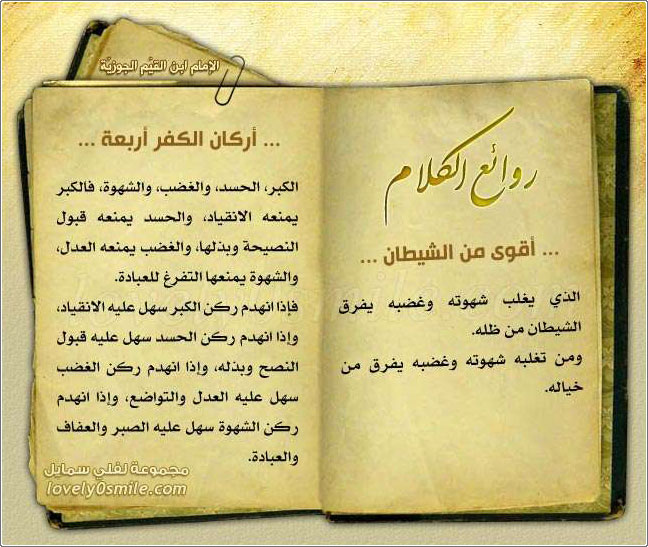 الإمام ابن القيّم الجوزيّة
روائع الكلام
... أقوى من الشيطان ...
الذي يغلب شهوته وغضبه يفرق
الشيطان من ظله.
ومن تغلبه شهوته وغضبه يفرق من
خياله.
... أركان الكفر أربعة ...
الكبر، الحسد، والغضب، والشهوة، فالكبر
يمنعه الانقياد، والحسد يمنعه قبول
النصيحة وبذلها، والغضب يمنعه العدل،
والشهوة يمنعها التفرغ للعبادة.
فإذا انهدم ركن الكبر سهل عليه الانقياد،
وإذا انهدم ركن الحسد سهل عليه قبول
النصح وبذله، وإذا انهدم ركن الغضب
سهل عليه العدل والتواضع، وإذا انهدم
ركن الشهوة سهل عليه الصبر والعفاف
والعبادة.
مجموعة لفلي سمايل
lovely0smile.com